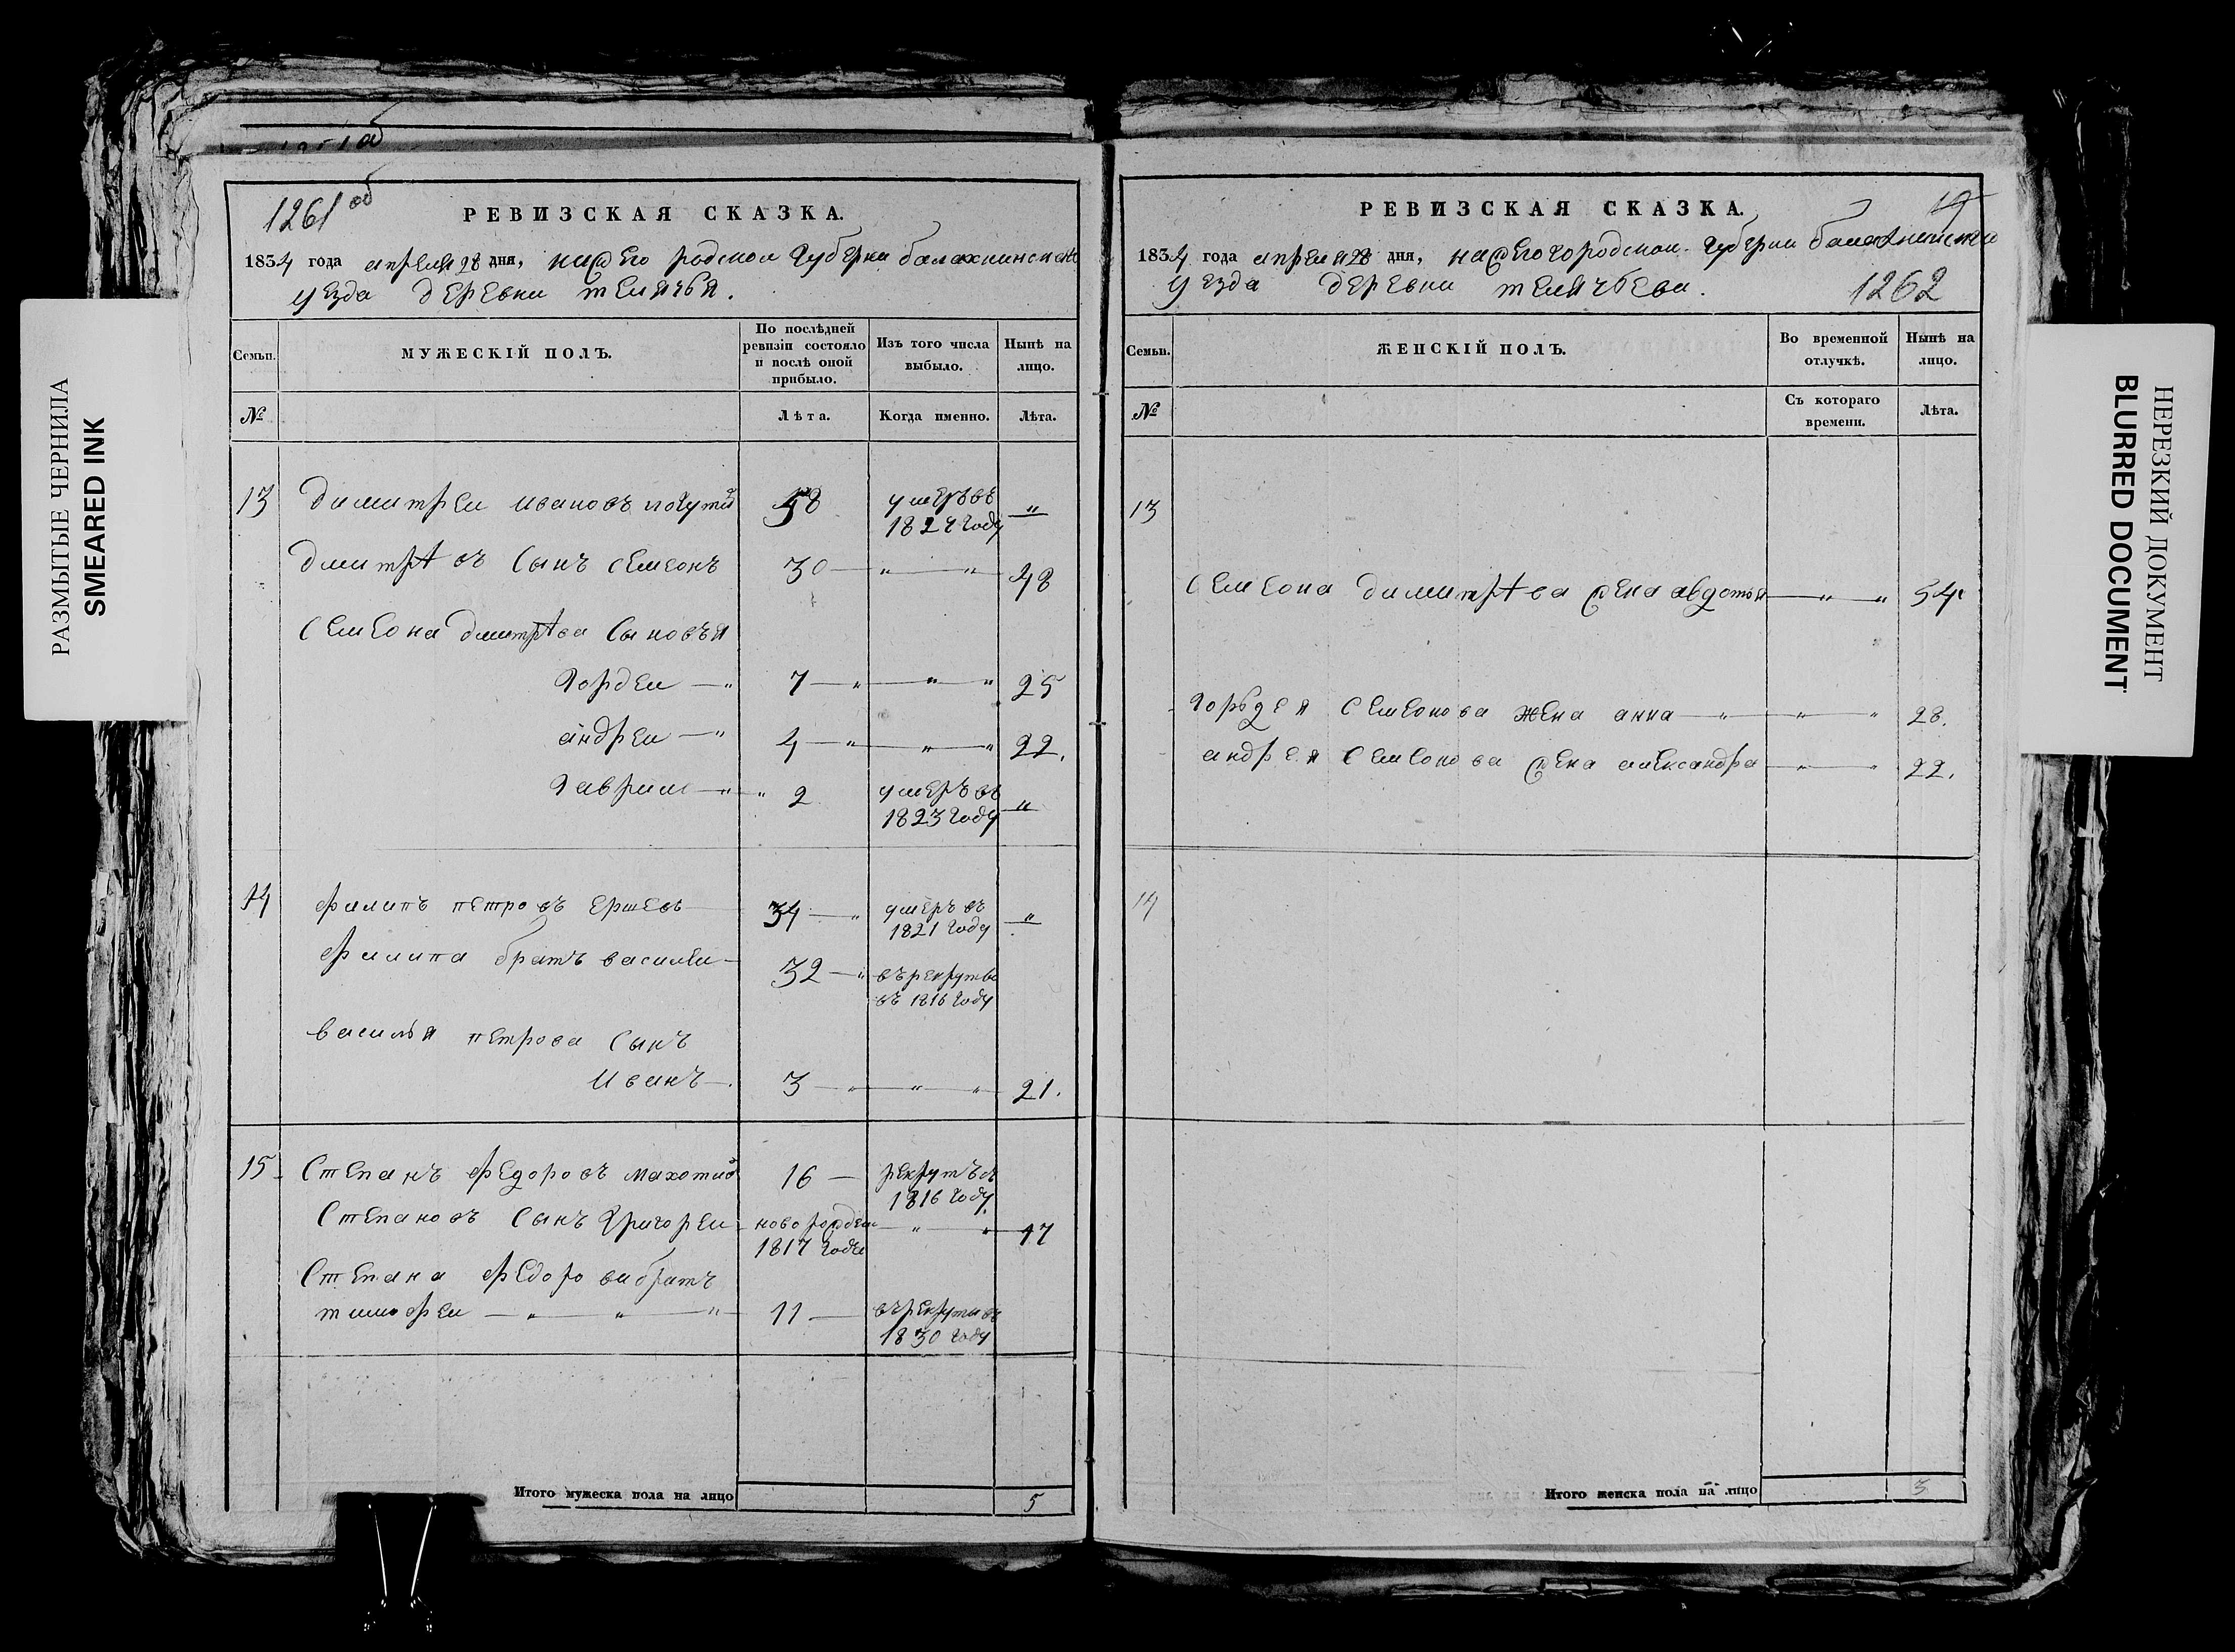 1261 об
РЕВИЗСКАЯ СКАЗКА.
1834 года апреля 28 дня, нижего родской губернии балахнинской
уезда деревни телячья.
Семьи.
МУЖЕСКІЙ ПОЛЪ.
По послѣдней ревизіи состояло и послѣ оной прибыло.
Изъ того числа выбыло.
Нынѣ на лицо.
№
Лѣта.
Когда именно.
Лѣта.
13 димитреи ивановъ 58 умеръ въ 1824 году "
дмитрѣвъ сынъ семеонъ 30 " " 48
семеона дмитрѣва сыновъя
гордеи 7 " " 25
андреи 4 " " 22.
гаврила 2 умеръ въ 1823 году "
14 филипъ петровъ ершевъ 34 умеръ въ 1821 году "
филипа братъ василеи 32 въ рекруты въ 1816 году
василья петрова сынъ
иванъ 3 " " 21.
15 степанъ федоровъ 16 рекрутъ въ 1816 году.
степановъ сынъ григореи новорожден 1817 года " " 17
степана федорова братъ
тимофеи " " " 11 въ рекруты въ 1830 году
Итого мужеска пола на лицо 5
РЕВИЗСКАЯ СКАЗКА.
1834 года апреля 28 дня, нижегогородской губернии
уезда деревни телячьева.
1262
Семьи.
ЖЕНСКІЙ ПОЛЪ.
Во временной отлучкѣ.
Нынѣ на лицо.
№
Съ котораго времени.
Лѣта.
13
семеона димитрѣва жена авдотья " " 54
горьдея семеонова жена анна " " 28.
андрея семеонова жена александра " " 22.
14
Итого женска пола на лицо 3
РАЗМЫТЫЕ ЧЕРНИЛА
SMEARED INK
НЕРЕЗКИЙ ДОКУМЕНТ
BLURRED DOCUMENT